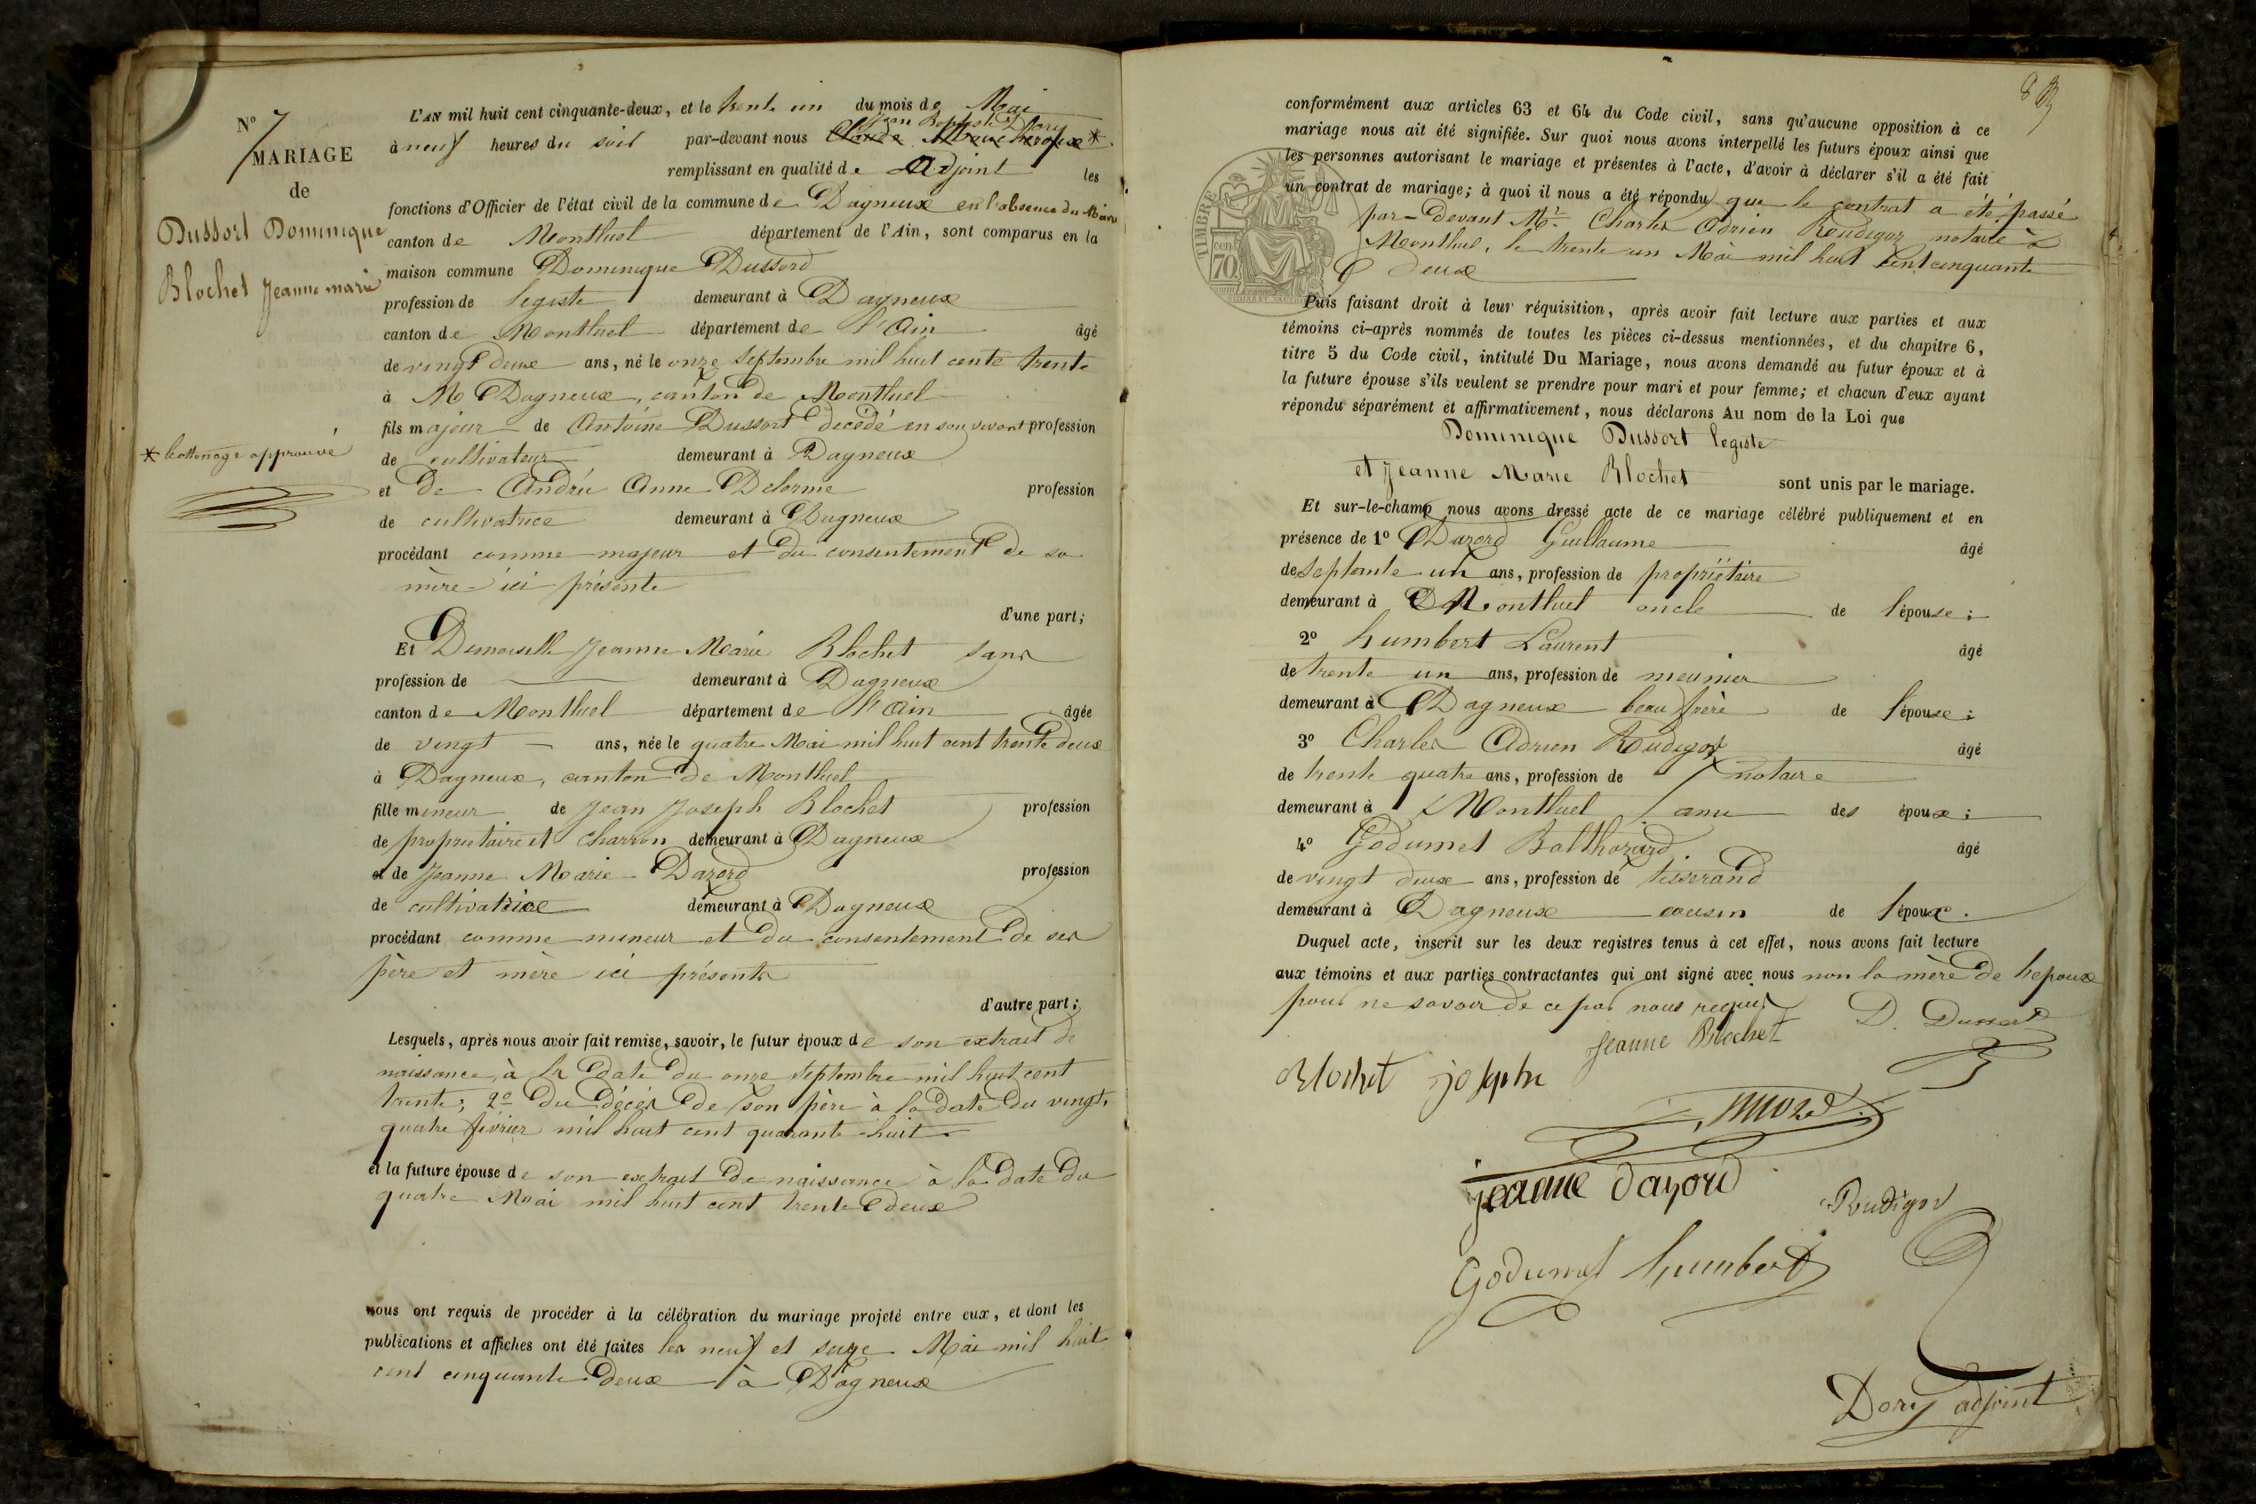 N° 7
MARIAGE
de
Dussort Dominique
Blochet Jeanne marie
* battonage approuvé
L'AN mil huit cent cinquante-deux, et le trente un du mois de Mai
Jean Baptiste Dory
à neuf heures du soir par-devant nous Claude *
remplissant en qualité de Adjoint les
fonctions d'Officier de l'état civil de la commune de Dagneux en l'absence du Maire
canton de Montluel département de l'Ain, sont comparus en la
maison commune Dominique Dussord
profession de legiste demeurant à Dagneux
canton de Montluel département de l'Ain âgé
de vingt deux ans, né le onze Septembre mil huit cents trente
à M Dagneux, canton de Montluel
fils majeur de Antoine Dussort décédé en son vivant profession
de cultivateur demeurant à Dagneux
et de Andrée Anne Delorme profession
de cultivatrice demeurant à Dagneux
procédant comme majeur et du consentement de sa
mère ici présente
d'une part;
Et Demoiselle Jeanne Marie Blochet sans
profession de demeurant à Dagneux
canton de Montluel département de l'Ain âgée
de vingt ans, née le quatre Mai mil huit cent trente deux
à Dagneux, canton de Montluel
fille mineur de Jean Joseph Blochet profession
de propriétaire et charron demeurant à Dagneux
et de Jeanne Marie Dazord profession
de cultivatrice demeurant à Dagneux
procédant comme mineur et du consentement de ses
père et mère ici présents
d'autre part;
Lesquels, après nous avoir fait remise, savoir, le futur époux de son extrait de
naissance, à la date du onze Septembre mil huit cent
trente; 2° du décés de son père à la date du vingt
quatre février mil huit cent quarante-huit
et la future épouse de son extrait de naissance à la date du
quatre Mai mil huit cent trente deux
nous ont requis de procéder à la célébration du mariage projeté entre eux, et dont les
publications et affiches ont été faites les neuf et seize Mai mil huit
cent cinquante deux à Dagneux
conformément aux articles 63 et 64 du Code civil, sans qu'aucune opposition à ce
mariage nous ait été signifiée. Sur quoi nous avons interpellé les futurs époux ainsi que
les personnes autorisant le mariage et présentes à l'acte, d'avoir à déclarer s'il a été fait
un contrat de mariage; à quoi il nous a été répondu que le contrat a été passé
par-devant Mr. Charles Adrien Rudigoz notaire à
Montluel, le trente un Mai mil huit cent cinquante
deux
TIMBRE
70 cen
Puis faisant droit à leur réquisition, après avoir fait lecture aux parties et aux
témoins ci-après nommés de toutes les pièces ci-dessus mentionnées, et du chapitre 6,
titre 5 du Code civil, intitulé Du Mariage, nous avons demandé au futur époux et à
la future épouse s'ils veulent se prendre pour mari et pour femme; et chacun d'eux ayant
répondu séparément et affirmativement, nous déclarons Au nom de la Loi que
Dominique Dussort legiste
et Jeanne Marie Blochet sont unis par le mariage.
Et sur-le-champ nous avons dressé acte de ce mariage célébré publiquement et en
présence de 1° Dazord Guillaume âgé
de septante un ans, profession de propriétaire
demeurant à Montluel oncle de l'épouse;
2° humbert Laurent âgé
de trente un ans, profession de meunier
demeurant à Dagneux beau frère de l'épouse;
3° Charles Adrien Rudigoz âgé
de trente quatre ans, profession de notaire
demeurant à Montluel ami des époux;
4° Godumet Balthazard âgé
de vingt deux ans, profession de tisserand
demeurant à Dagneux cousin de l'époux.
Duquel acte, inscrit sur les deux registres tenus à cet effet, nous avons fait lecture
aux témoins et aux parties contractantes qui ont signé avec nous non la mère de l'époux
pour ne savoir de ce par nous requis
D. Dussort
Jeanne Blochet
Blochet joseph
jeanne dazord
Rudigoz
Godumet humbert
Dory adjoint